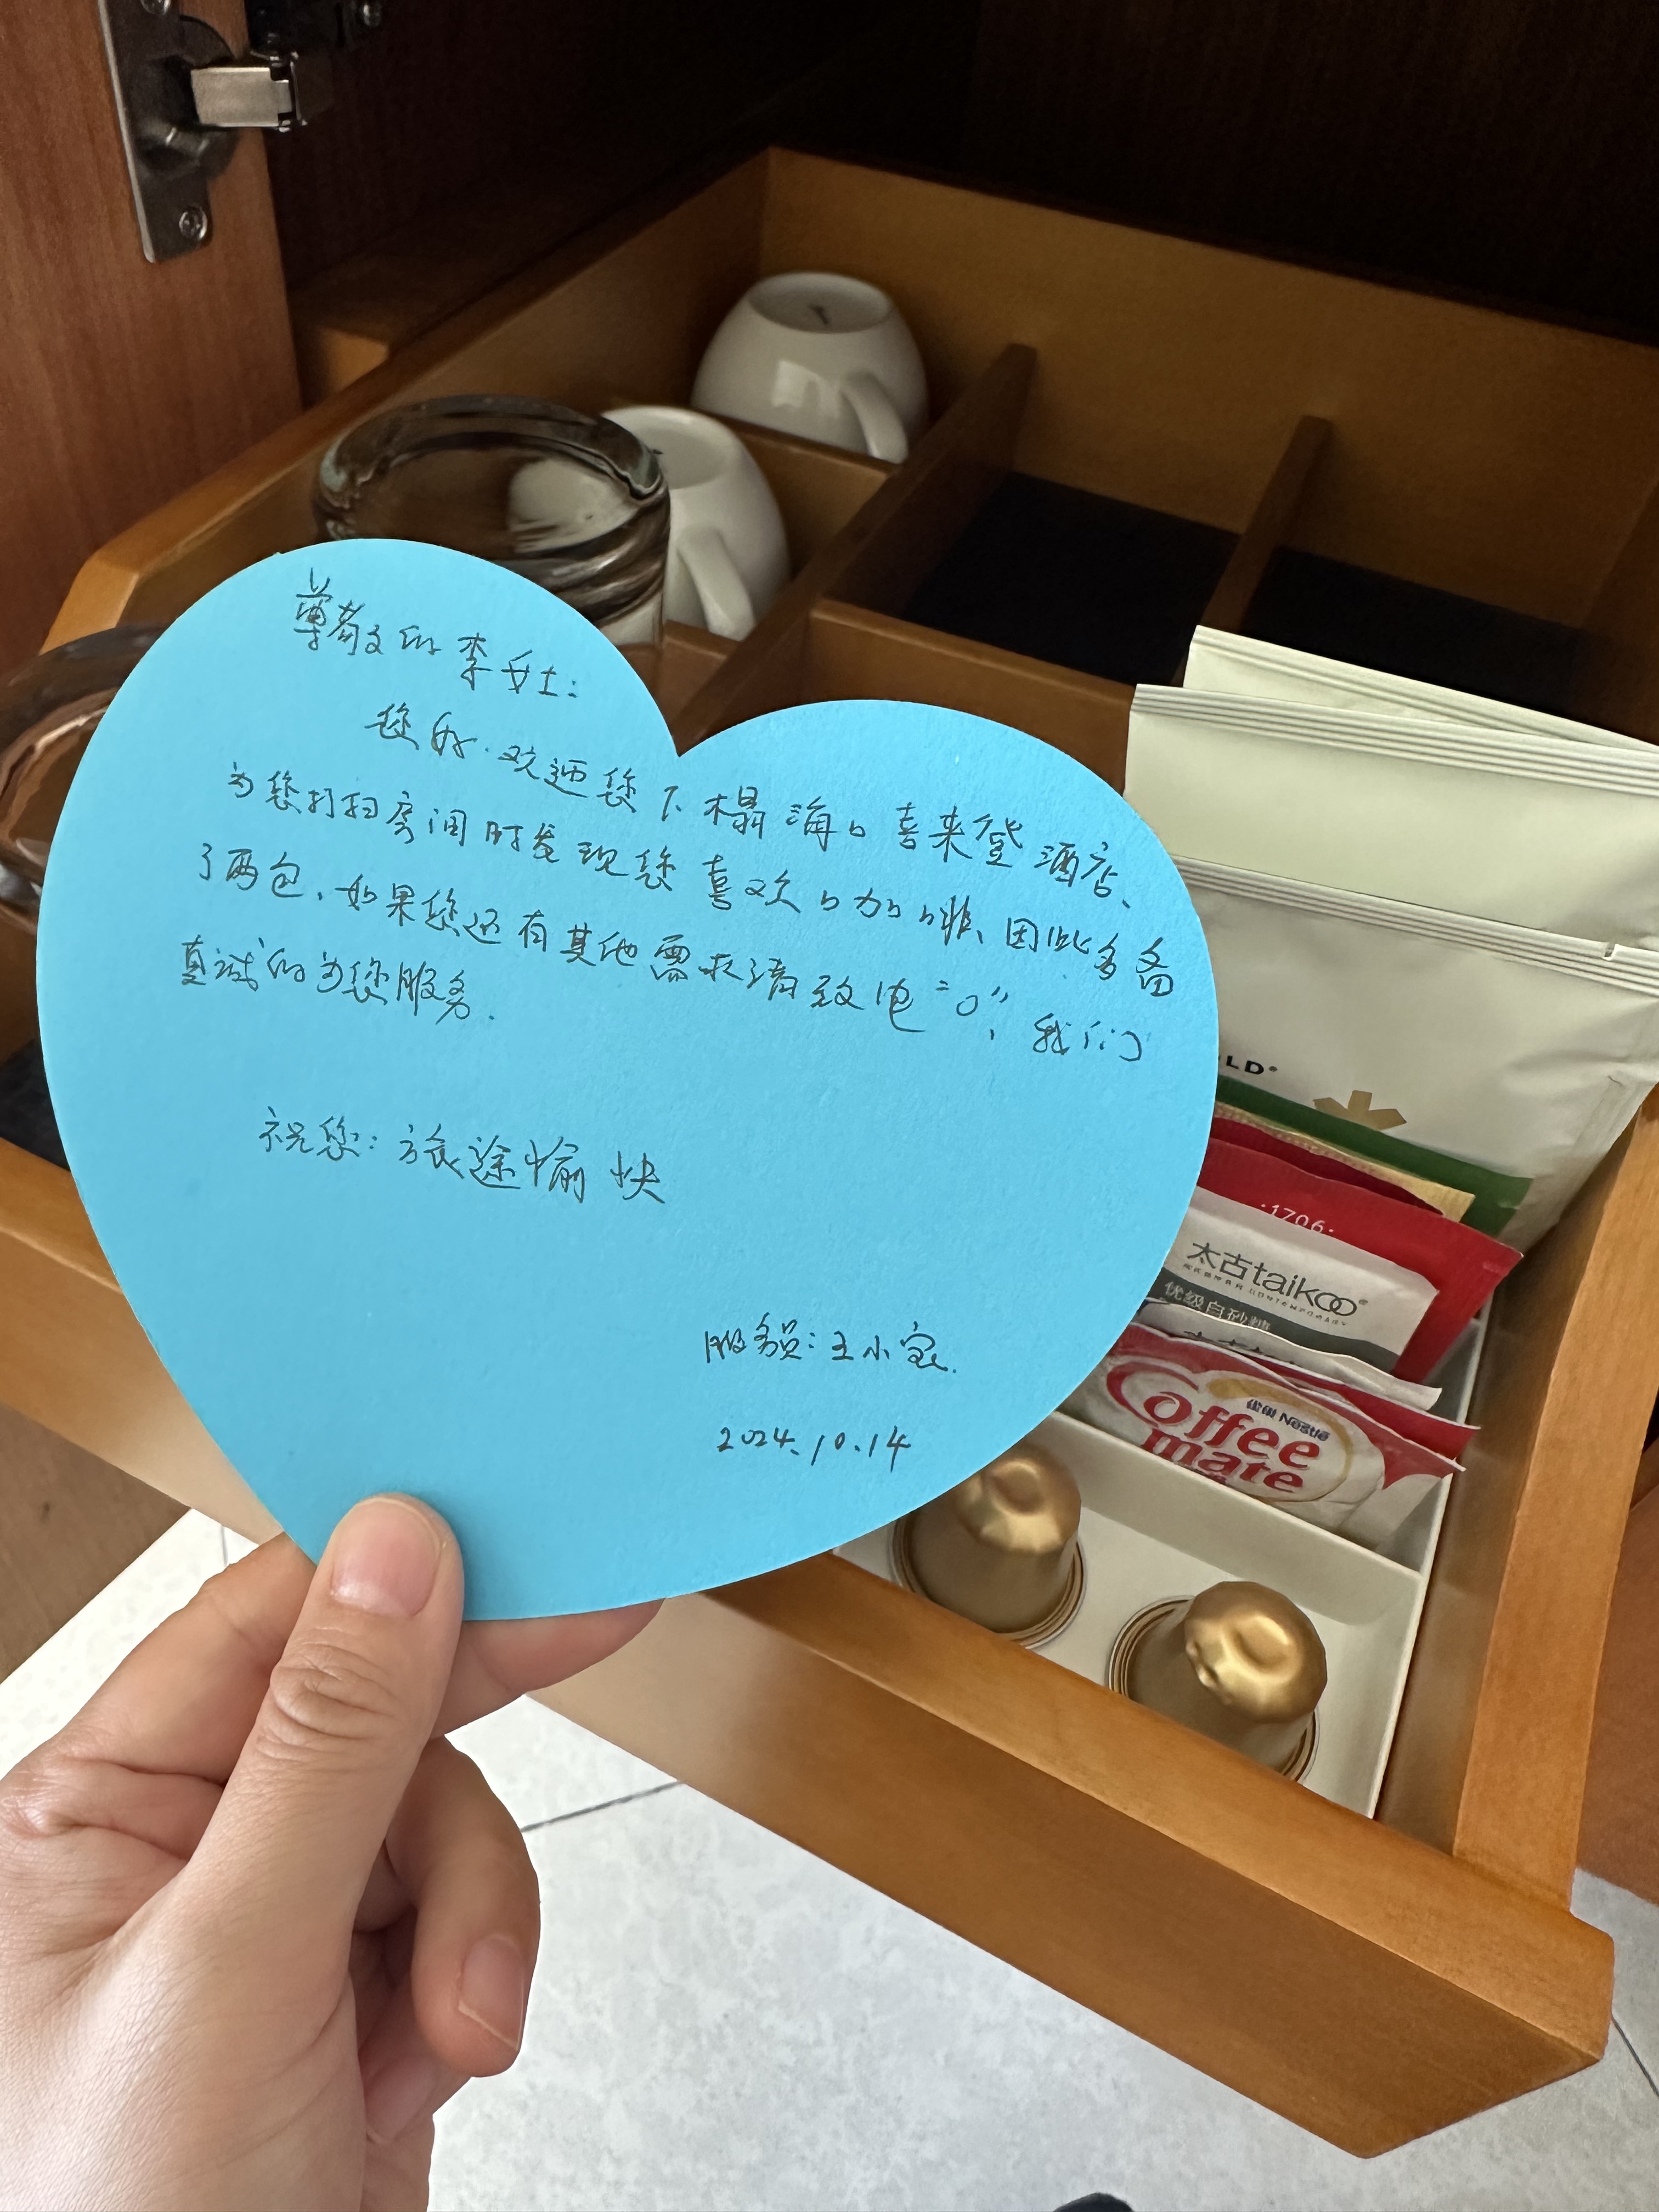 尊敬的李女士:
您好.欢迎您下榻海口喜来登酒店、
为您打扫房间时发现您喜欢咖啡、因此多备
了两包.如果您还有其他需求请致电“0”,我们
真诚的为您服务.
祝您:旅途愉快
服务员:王小
2024.10.14
LD
·1706·
太古taikoo
优级白砂糖
雀巢 Nestlé
Coffee
mate